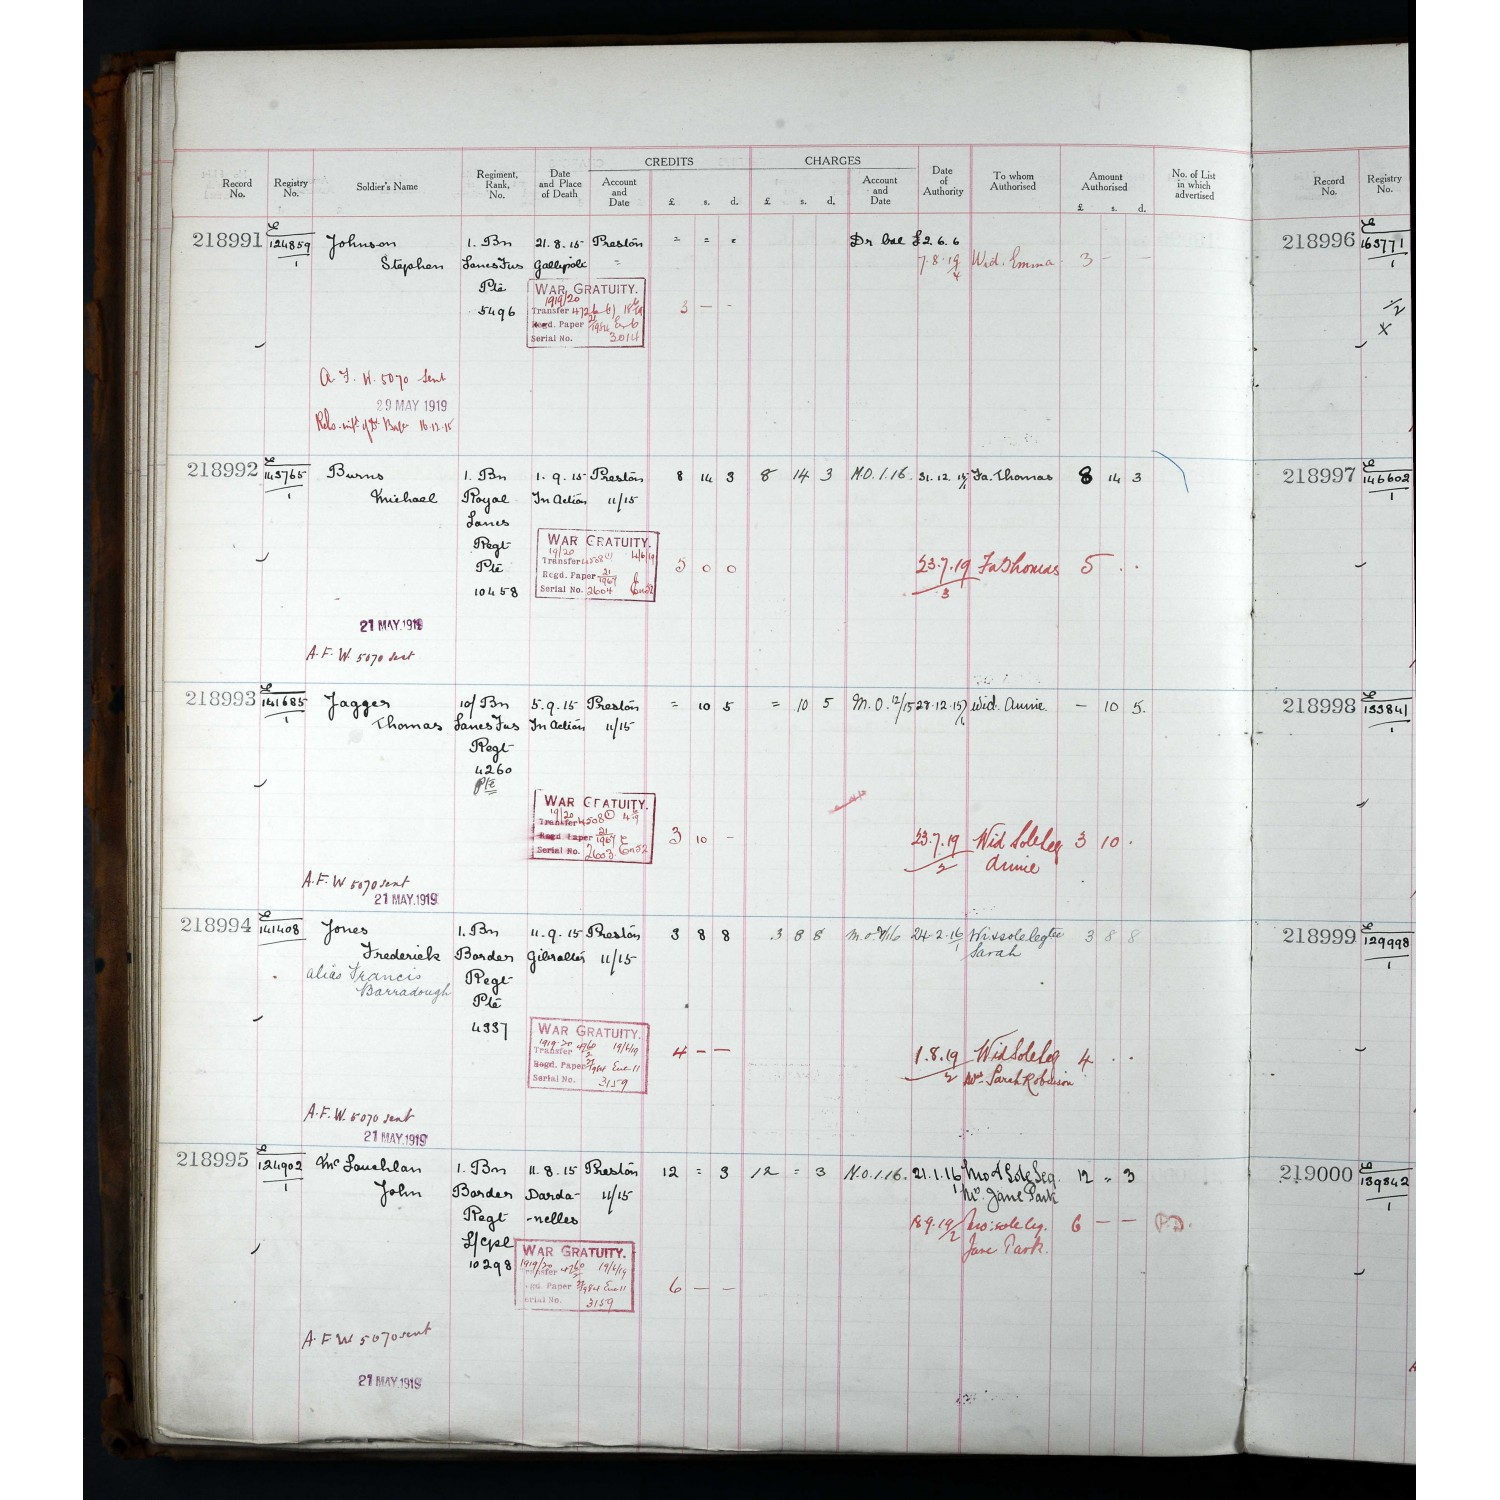 CREDITS CHARGES
Record No. Registry No. Soldier's Name Regiment, Rank, No. Date and Place of Death Account and Date £ s. d. £ s. d. Account and Date Date of Authority To whom Authorised Amount Authorised £ s. d. No. of List in which advertised Record No. Registry No.
218991 E 124859/1 Johnson 1. Bn 21.8.15 Preston = = = Dr bal £2.6.6
Stephen Lancs Fus Gallipoli " 7.8.19/4 Wid. Emma 3 - -
Pte
5496
WAR GRATUITY.
1919/20
Transfer
Regd. Paper 21/1984
Serial No. 3014
3 - -
A F. W. 5070 sent
29 MAY 1919
218992 E 145765/1 Burns 1. Bn 1.9.15 Preston 8 14 3 8 14 3 M.O.1.16. 31.12.15/1 Fa. Thomas 8 14 3
Michael Royal In Action 11/15
Lancs
Regt
Pte
10458
WAR GRATUITY.
19/20
Transfer 4508
Regd. Paper 21/1967
Serial No. 2604
5 0 0 23.7.19/3 Fa Thomas 5 . .
21 MAY.1919
A.F.W. 5070 sent
218993 E 141685/1 Jagger 10/Bn 5.9.15 Preston = 10 5 = 10 5 M.O.12/15 28.12.15/1 Wid. Annie. - 10 5.
Thomas Lancs Fus In Action 11/15
Regt
4260
Pte
WAR GRATUITY.
19/20
Transfer 4508
Regd Paper 21/1967
Serial No. 2603
3 10 - 23.7.19/2 Wid Sole Leg 3 10 .
Annie
A.F.W 5070 sent
21 MAY.1919
218994 E 141408/1 Jones 1. Bn 11.9.15 Preston 3 8 8 3 8 8 M.O.2/16 24.2.16/1 Wid sole legtee 3 8 8
Frederick Border Gibralter 11/15 Sarah
alias Francis Regt
Barradough Pte
4337
WAR GRATUITY.
1919-20
Transfer 4760/2 19/6/19
Regd. Paper 21/1984
Serial No. 3159
4 - - 1.8.19/2 Wid Sole Leg 4 . .
Mrs Sarah Robinson
A.F.W. 5070 sent
21 MAY.1919
218995 E 124902/1 McLauchlan 1. Bn 11.8.15 Preston 12 = 3 12 = 3 M.O.1.16. 21.1.16/1 Mo & Sole Leg. 12 " 3
John Border Darda- 11/15 Mrs. Jane Park
Regt -nelles 18.9.19/2 Mo: sole leg. 6 - -
L/Cpl Jane Park.
10298
WAR GRATUITY.
1919/20
Transfer 4760/2 19/6/19
Regd. Paper 21/1984
Serial No. 3159
6 - -
A.F.W 5070 sent
21 MAY.1919
218996 E 163771/1
1/2
X
218997 E 146602/1
218998 E 133841/1
218999 E 129998/1
219000 E 139842/1